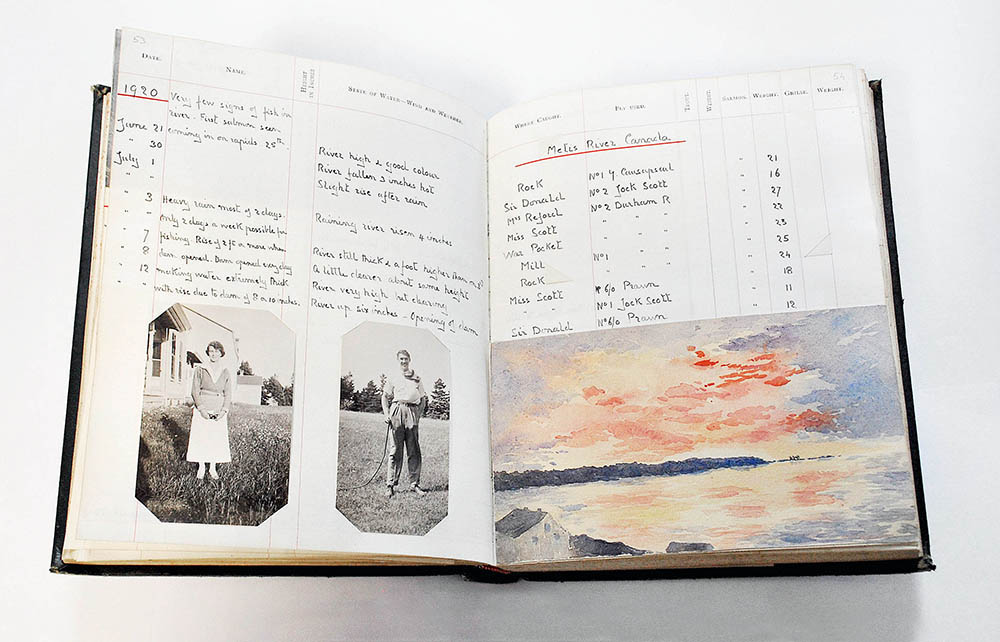 53
DATE.
NAME.
HEIGHT IN INCHES
STATE OF WATER—WIND AND WEATHER.
1920
Very few signs of fish in
river. First salmon seen
coming in on rapids 25th
June 21
" 30
July 1
" "
" 3
" "
" 7
" 8
" 12
" "
Heavy rain most of 2 days.
Only 2 days a week possible for
fishing. Rise of 2 ft or more when
dam opened. Dam opened every day
making water extremely thick
with rise due to dam of 8 a 10 inches.
River high & good colour
River fallen 3 inches hot
Slight rise after rain
Raining river risen 4 inches
River still thick & a foot higher than on 3rd
A little clearer about same height
River very high but clearing
River up six inches - Opening of dam
54
WHERE CAUGHT.
FLY USED.
TROUT.
WEIGHT.
SALMON.
WEIGHT.
GRILSE.
WEIGHT.
Metis River Canada
Rock No 1 Y. Causapscal " 21
Sir Donald No 2 Jock Scott " 16
Mrs Reford No 2 Durham R " 27
Miss Scott " " " " 22
War Pocket " " " " 23
Mill No 1 " 25
Rock " " " " 24
Miss Scott 6/0 Prawn " 18
No 1 Jock Scott " 11
Sir Donald No 6/0 Prawn " 12